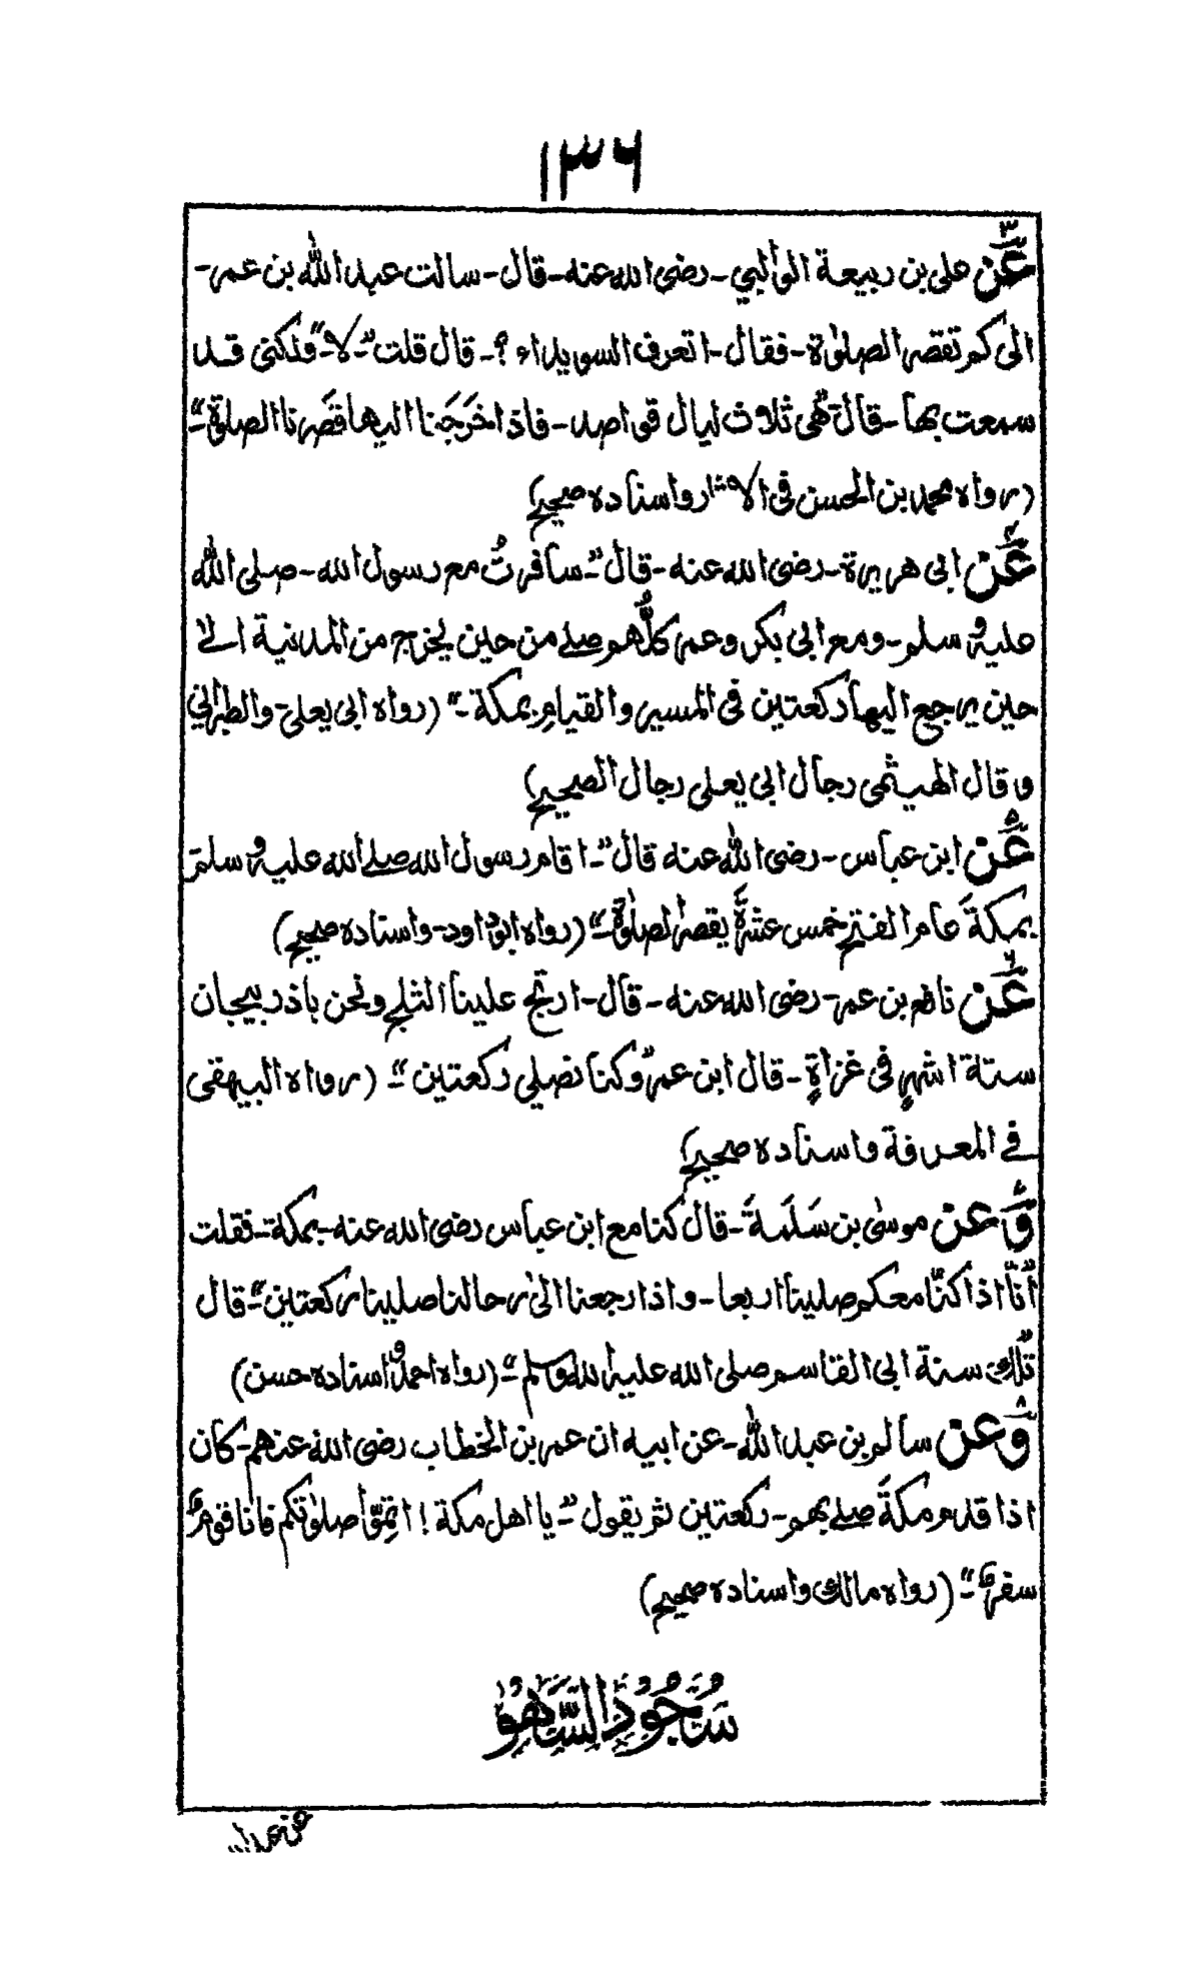 ۱۳۶
۳
عَنْ علی بن ربیعة الوالبي۔ رضی الله عنه۔ قال۔ سالت عبد الله بن عمر۔
الی کم تقصر الصلوٰة۔ فقال۔ اتعرف السویداء ؟۔ قال قلت "۔ لا۔" ولکنی قد
سمعت بها۔ قال "هی ثلاث لیال قواصد۔ فاذا خَرَجَنا الیها قصَرنا الصلوٰة۔"
(رواه محمد بن الحسن فی الاٰثار واسناده صحیح)
۴
عَنْ ابی هریرة۔ رضی الله عنه۔ قال "۔ سافرتُ مع رسول الله۔ صلی الله
علیه وسلم۔ ومع ابی بکر وعمر کلُّهم صلے من حین یخرج من المدنیة الیٰ
حین یرجع الیها رکعتین فی المسیر والقیام بمکة۔" (رواه ابی یعلی۔ والطبراني
وقال الهیثمی رجال ابی یعلی رجال الصحیح)
۵
عَنْ ابن عباس۔ رضی الله عنه قال "۔ اقام رسول الله صلے الله علیه وسلم
بمکةَ عام الفتح خمس عشرةَ یقصر الصلوٰة۔" (رواه ابوداود۔ واسناده صحیح)
۶
عَنْ نافع بن عمر۔ رضی الله عنه۔ قال۔ ارتج علینا الثلج ونحن باذربیجان
ستة اشهرٍ فی غزاةٍ۔ قال ابن عمر "وکنا نصلي رکعتین"۔ (رواه البیهقی
فی المعرفة واسناده صحیح)
۷
وَعن موسیٰ بن سَلَمةَ۔ قال کنا مع ابن عباس رضی الله عنه۔ بمکة۔ فقلت
"اَنّا اذا کنّا معکم صلینا اربعا۔ واذا رجعنا الیٰ رحالنا صلینا رکعتین"۔ قال
"تلك سنة ابی القاسم صلی الله علیه وسلم"۔ (رواه احمد واسناده حسن)
۸
وَعن سالم بن عبد الله۔ عن ابیه ان عمر بن الخطاب رضی الله عنهم۔ کان
اذا قدم مکةَ صلے بهم۔ رکعتین ثم یقول "۔ یا اهل مکة ! اتمّوا صلوٰتکم فانا قومٌ
سفرٌ۔" (رواه مالك واسناده صحیح)
سُجُوْدُ السَّهْوِ